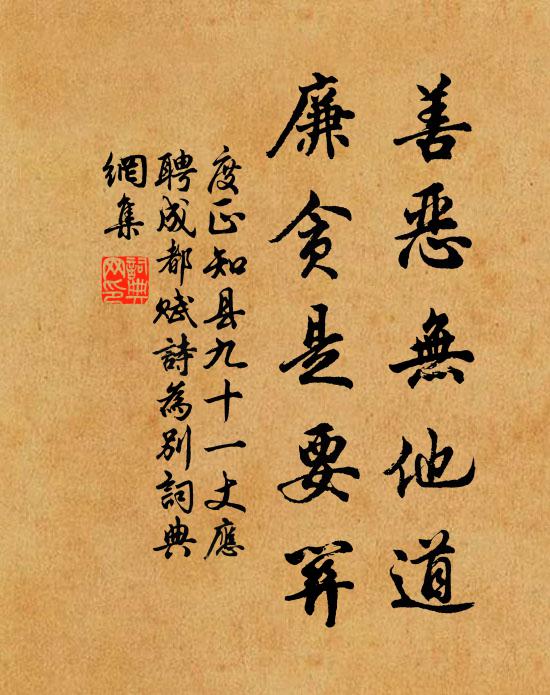 善惡無他道
廉貪是要關
度正知县九十一丈應
聘成都賦詩為別詞典
網集
詞典
网印